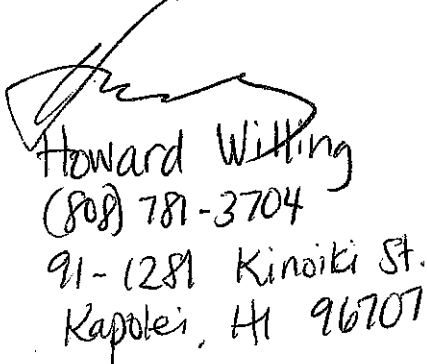 Howard Witting
(808) 781-3704
91-1281 Kinoiki St.
Kapolei, HI 96707